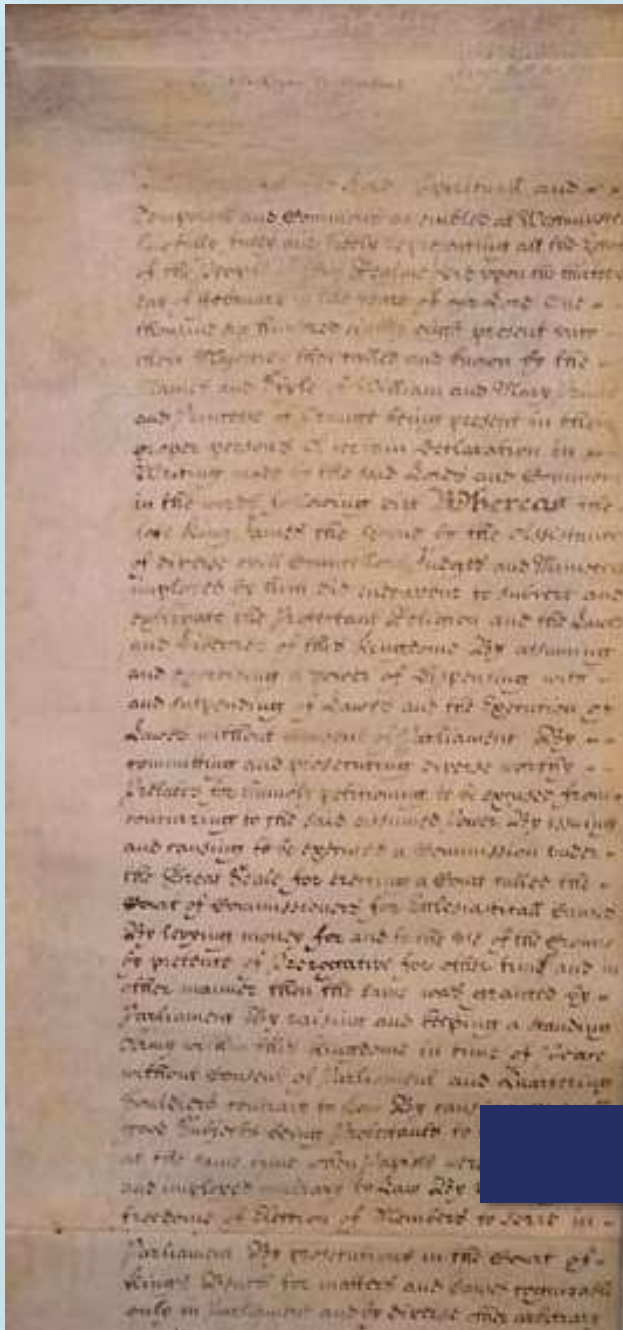 Lords Spirituall and
Temporall and Commons assembled at Westminster
lawfully fully and freely representing all the
of the People of this Realme did upon the
day of February in the yeare of our Lord One
thousand six hundred eighty eight present unto
their Majesties then called and knowne by the
Names and Stile of William and Mary Prince
and Princesse of Orange being present in their
proper persons A certaine Declaration in
Writing made by the said Lords and Commons
in the words following viz Whereas the
late King James the Second by the Assistance
of diverse evill Councellors Judges and Ministers
imployed by him did endeavour to subvert and
extirpate the Protestant Religion and the Lawes
and Liberties of this Kingdome By assuming
and exerciseing a power of dispensing with
and suspending of Lawes and the Execution of
Lawes without consent of Parliament By
committing and prosecuting diverse worthy
Prelates for humbly petitioning to be excused from
concurring to the said assumed power By issuing
and causing to be executed a Commission under
the Great Seale for erecting a Court called the
Court of Commissioners for Ecclesiasticall Causes
By levying money for and to the use of the Crowne
by pretence of Prerogative for other time and in
other manner then the same was granted by
Parliament By raising and keeping a standing
Army within this Kingdome in time of Peace
without Consent of Parliament and Quartering
Souldiers contrary to Law By
good Subjects being Protestants to
at the same time when Papists were
and imployed contrary to Law By
freedome of Election of Members to serve in
Parliament By prosecutions in the Court of
Kings Bench for matters and causes cognizable
only in Parliament and by diverse other arbitrary